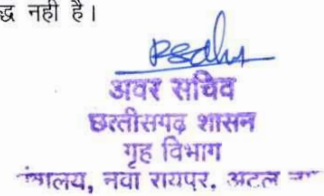 द्ध नही है।
अवर सचिव
छत्तीसगढ़ शासन
गृह विभाग
मंत्रालय, नवा रायपुर, अटल